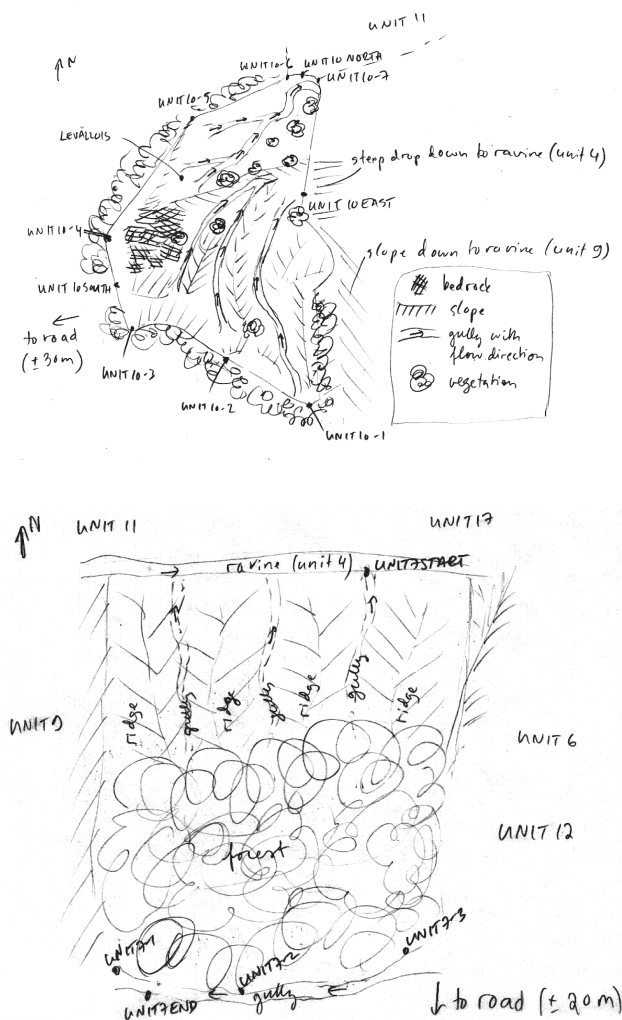 UNIT 11
N
UNIT 10-6
UNIT 10 NORTH
UNIT 10-7
UNIT 10-5
LEVALLOIS
steep drop down to ravine (unit 4)
UNIT 10 EAST
UNIT 10-4
slope down to ravine (unit 9)
UNIT 10 SOUTH
bedrock
slope
gully with
flow direction
vegetation
to road
(± 30m)
UNIT 10-3
UNIT 10-2
UNIT 10-1
N
UNIT 11
UNIT 17
ravine (unit 4)
UNIT 7 START
ridge
gully
ridge
gully
ridge
gully
ridge
UNIT 9
UNIT 6
UNIT 12
forest
UNIT 7-1
UNIT 7-2
UNIT 7-3
UNIT 7 END
gully
to road (± 20m)